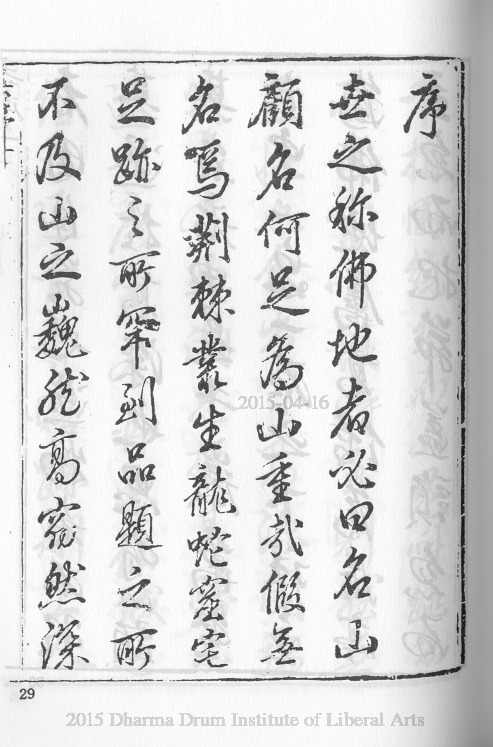 序
世之称佛地者必曰名山
顧名何足為山重哉假無
名焉荆棘叢生龍蛇窟宅
足跡之所罕到品題之所
不及山之巍然高窈然深
29
2015-04-16
2015 Dharma Drum Institute of Liberal Arts